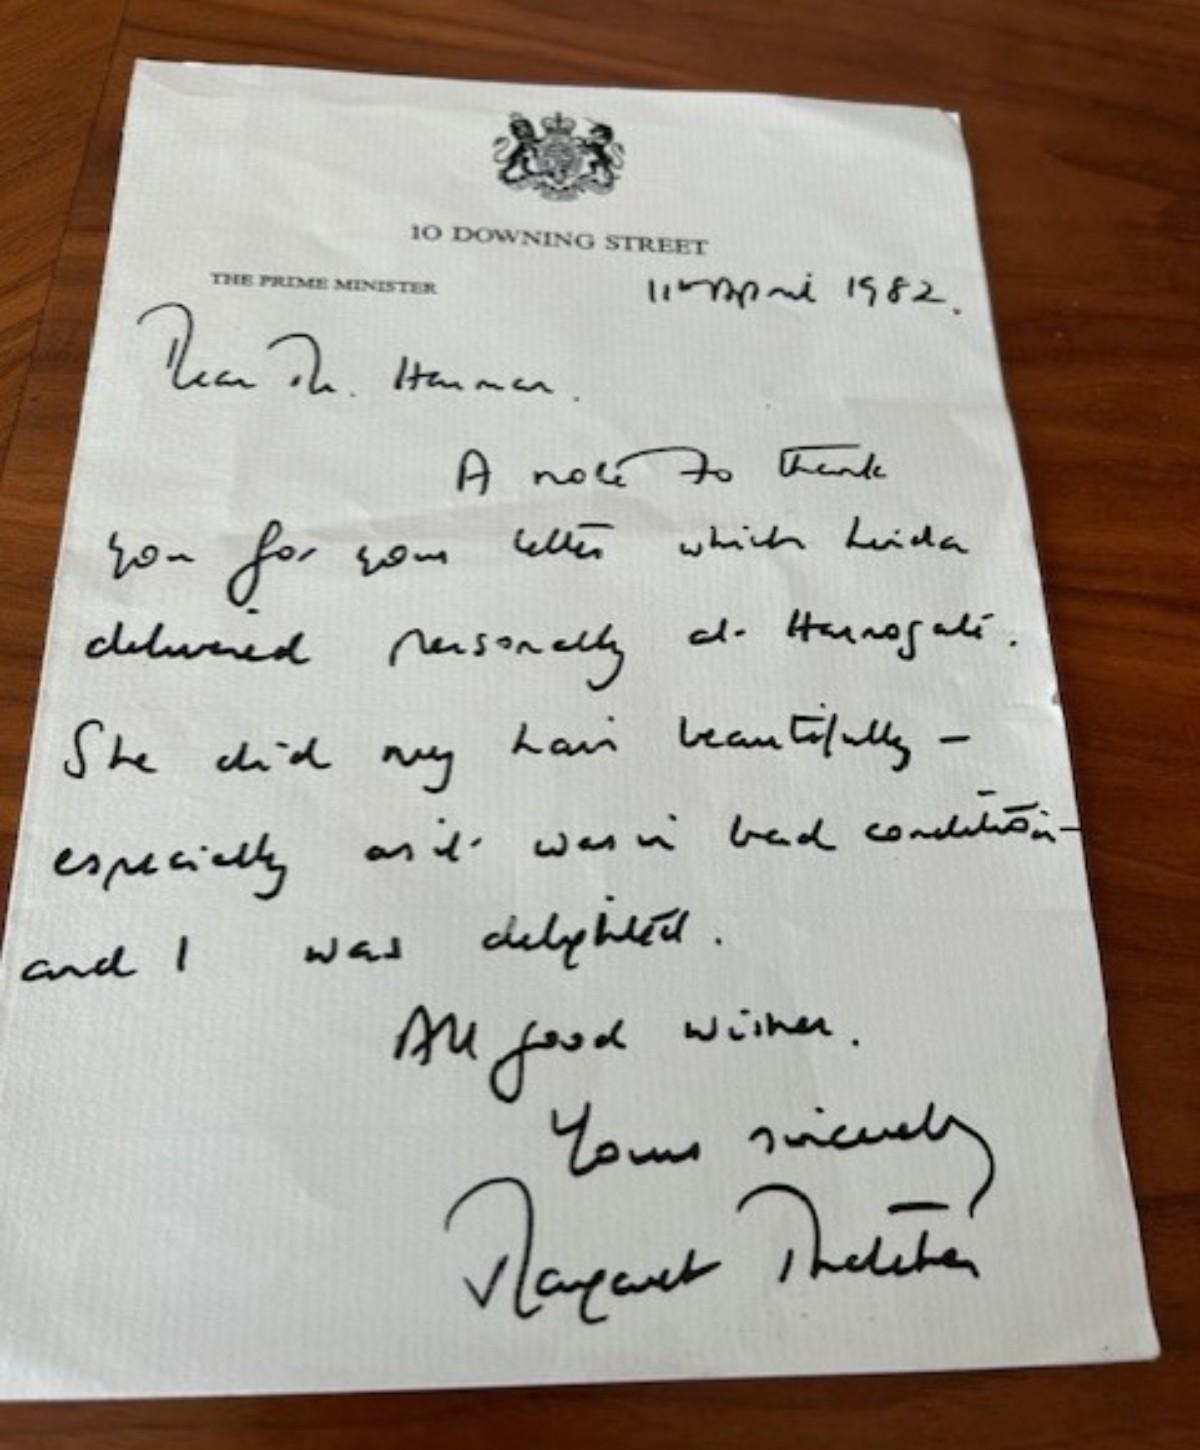 10 DOWNING STREET
THE PRIME MINISTER
11th April 1982.
Dear Mr. Harman.
A note to thank
you for your letter which Linda
delivered personally at Harrogate.
She did my hair beautifully –
especially as it was in bad condition –
and I was delighted.
All good wishes.
Yours sincerely
Margaret Thatcher